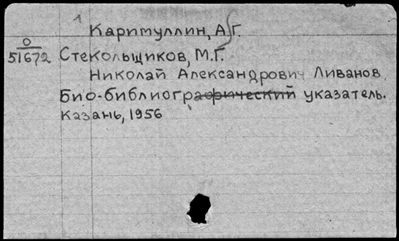 1
Каримуллин, А.Г.
0
51672
Стекольщиков, М.Г.
Николай Александрович Ливанов.
Био-библиографический указатель.
Казань, 1956